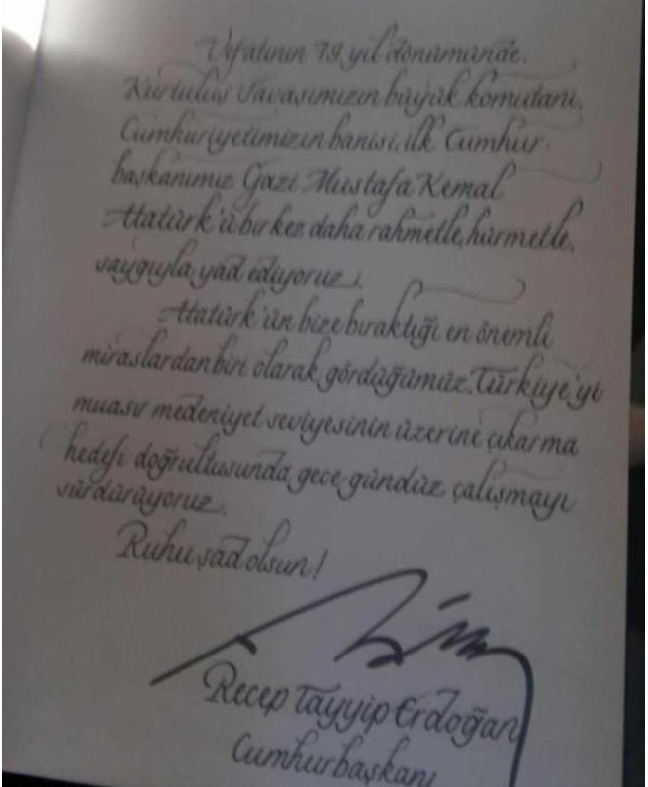 Vefatının 79. yıl dönümünde,
Kurtuluş Savaşımızın büyük komutanı,
Cumhuriyetimizin banisi, ilk Cumhur-
başkanımız Gazi Mustafa Kemal
Atatürk'ü bir kez daha rahmetle, hürmetle,
saygıyla yad ediyoruz.
Atatürk'ün bize bıraktığı en önemli
miraslardan biri olarak gördüğümüz, Türkiye'yi
muasır medeniyet seviyesinin üzerine çıkarma
hedefi doğrultusunda gece gündüz çalışmayı
sürdürüyoruz.
Ruhu şad olsun!
Recep Tayyip Erdoğan
Cumhurbaşkanı